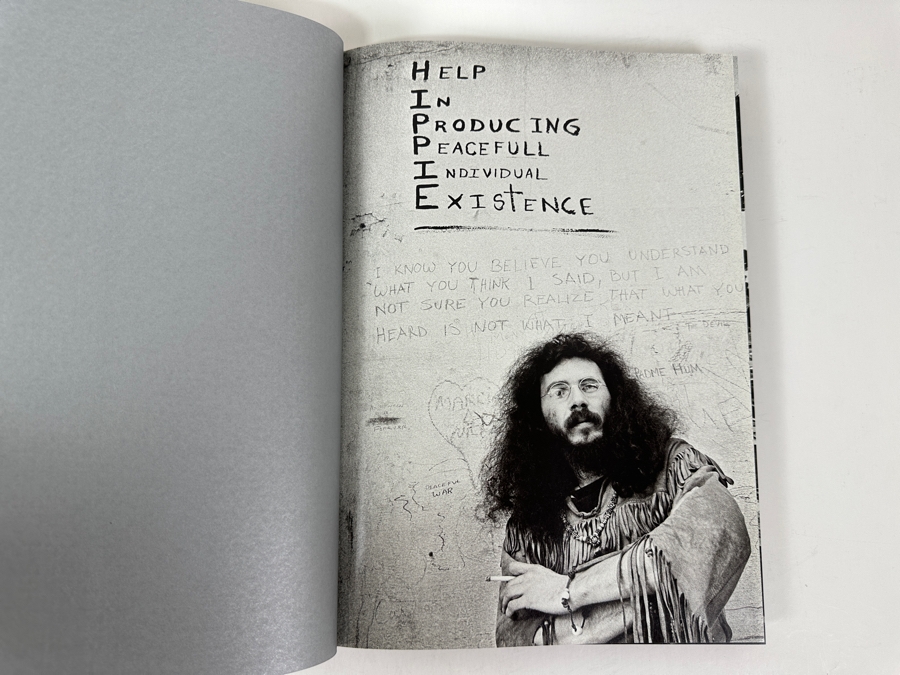 HELP
IN
PRODUCING
PEACEFULL
INDIVIDUAL
EXISTENCE
I KNOW YOU BELIEVE YOU UNDERSTAND
WHAT YOU THINK I SAID, BUT I AM
NOT SURE YOU REALIZE THAT WHAT YOU
HEARD IS NOT WHAT I MEANT
HUM
PEACEFUL
WAR